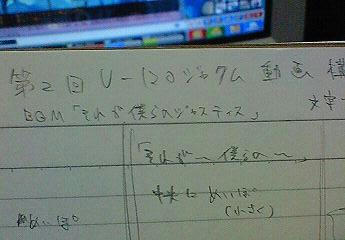 第2回 U-120ジャクム 動画 構
BGM「それが僕らのジャスティス」
文字
「それが〜僕らの〜」
中央に めいぽ
(小さく)
めいぽ